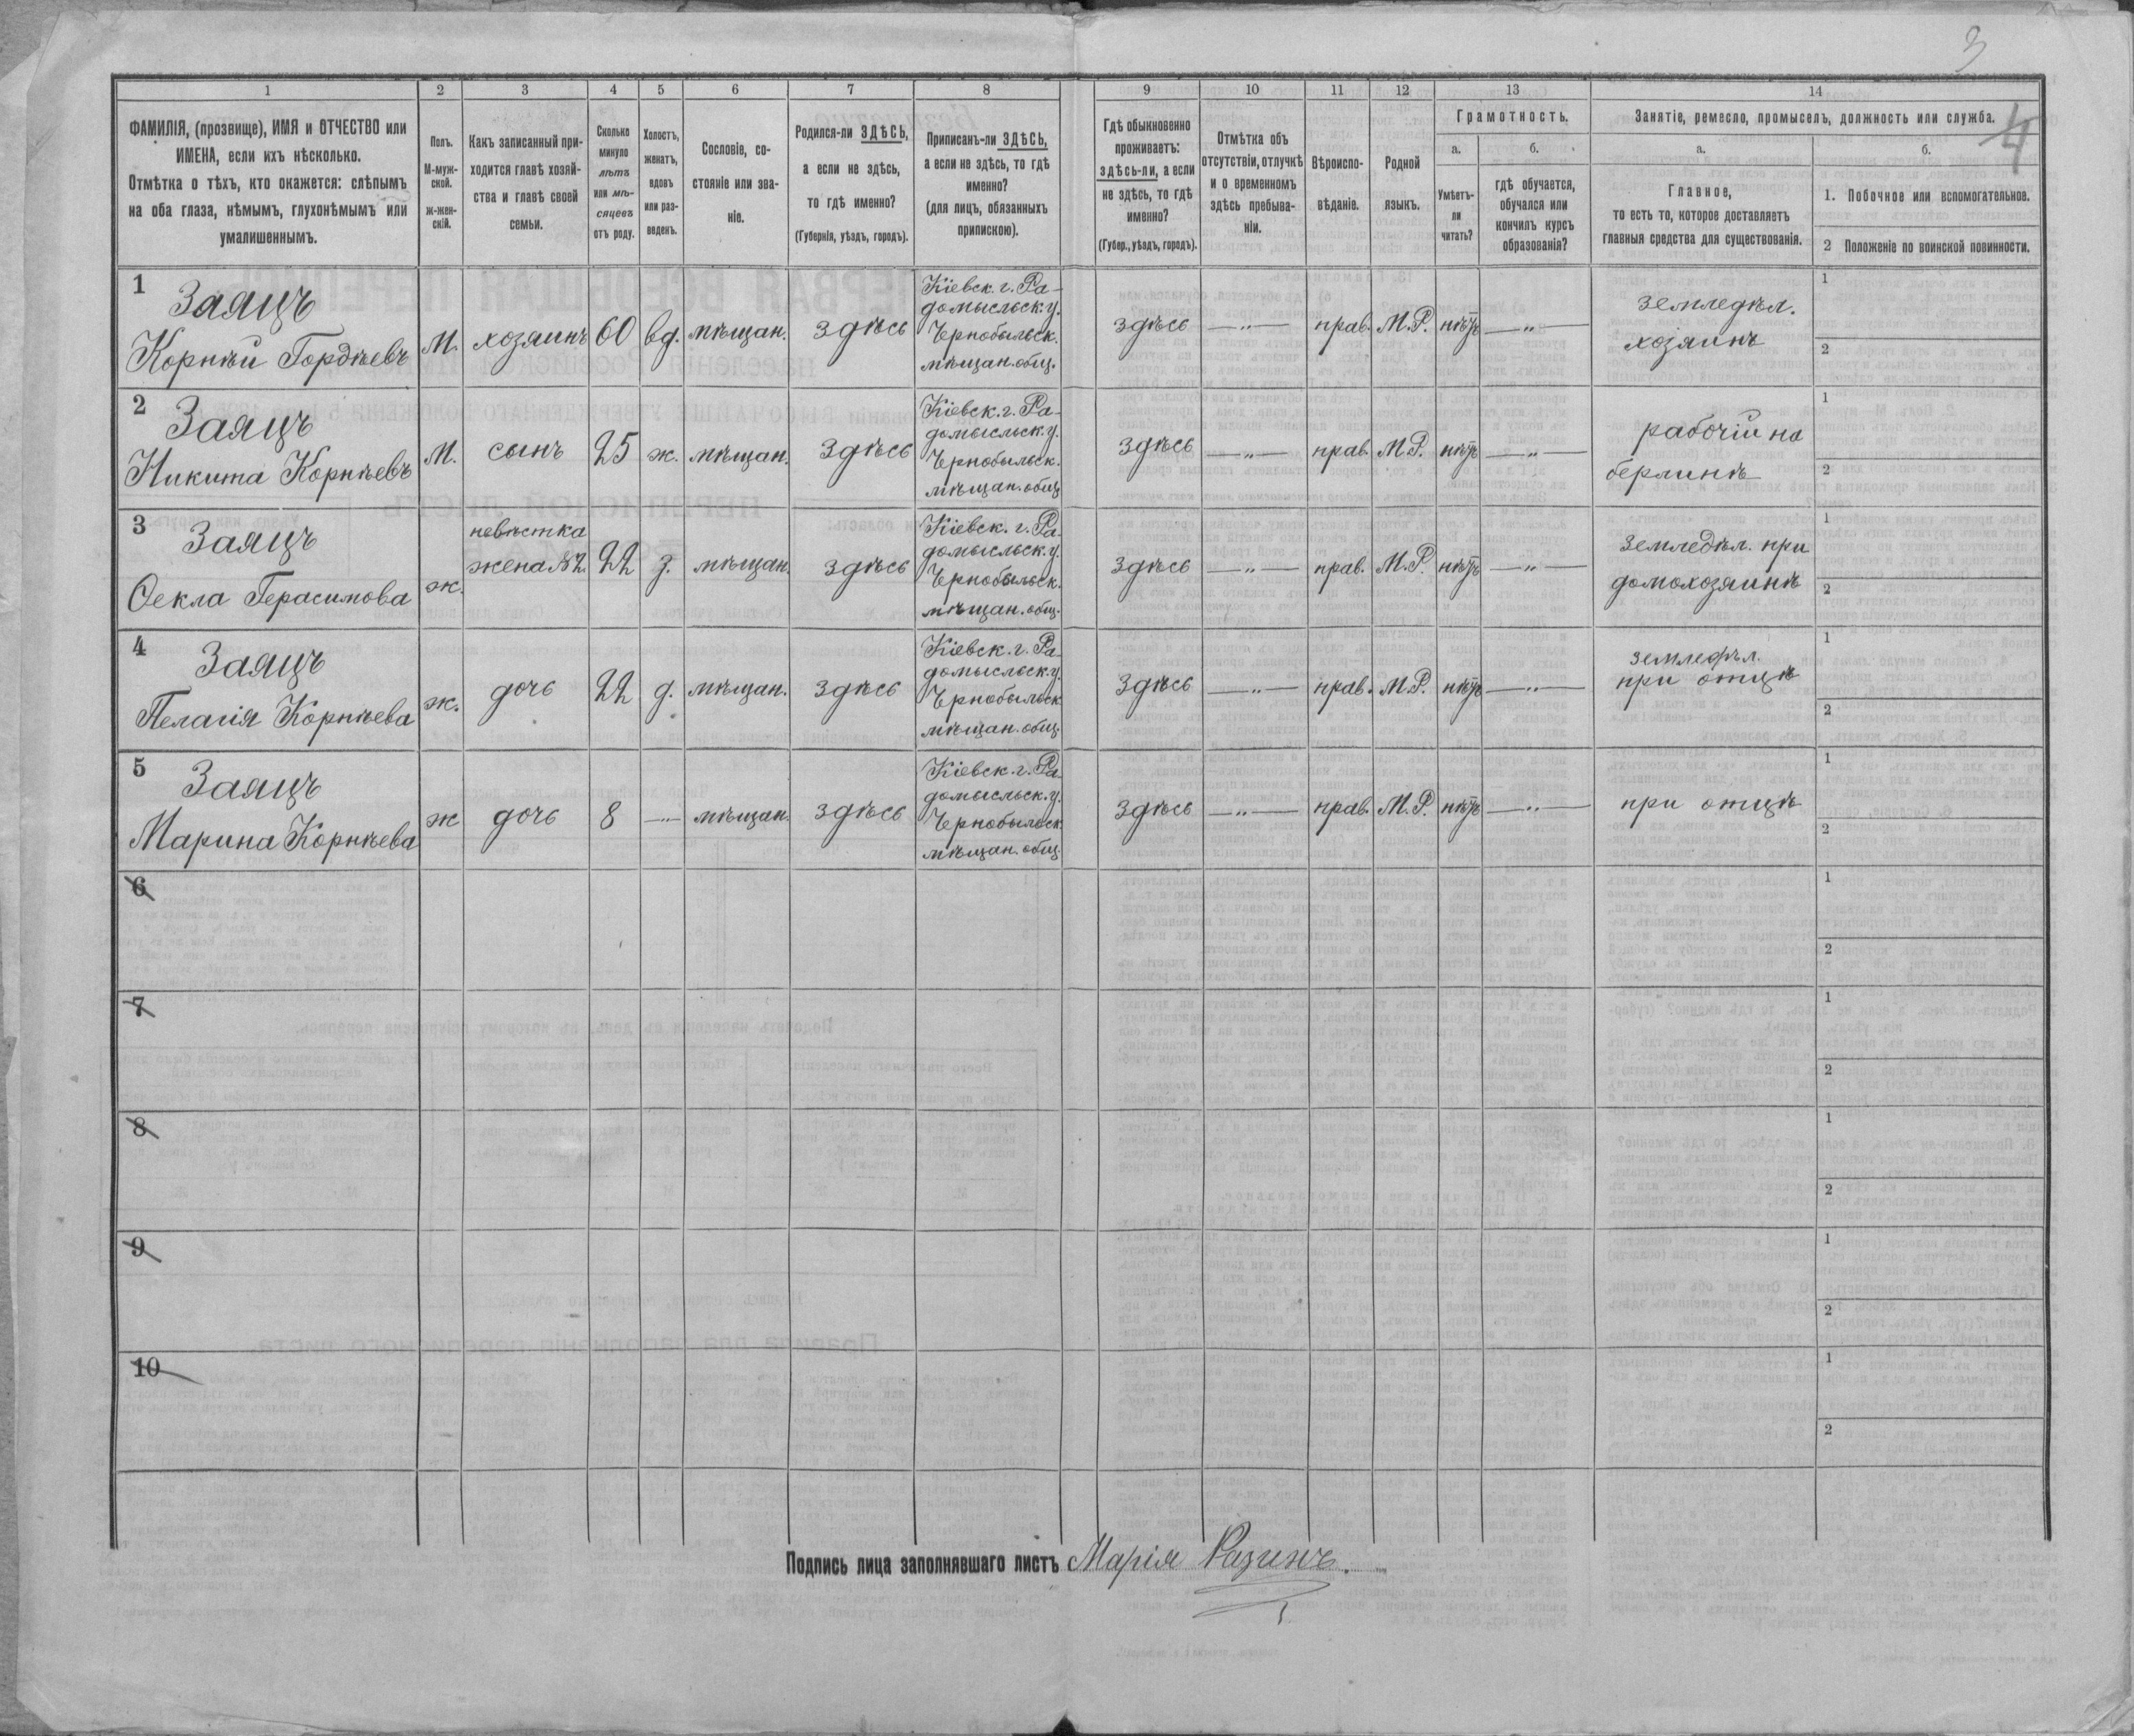 3
4
1 2 3 4 5 6 7 8 9 10 11 12 13 14
ФАМИЛІЯ, (прозвище), ИМЯ и ОТЧЕСТВО или
ИМЕНА, если ихъ нѣсколько.
Отмѣтка о тѣхъ, кто окажется: слѣпымъ
на оба глаза, нѣмымъ, глухонѣмымъ или
умалишеннымъ.
Полъ.
М-муж-
ской.
ж-жен-
скій.
Какъ записанный при-
ходится главѣ хозяй-
ства и главѣ своей
семьи.
Сколько
минуло
лѣтъ
или мѣ-
сяцевъ
отъ роду.
Холостъ,
женатъ,
вдовъ
или раз-
веденъ.
Сословіе, со-
стояніе или зва-
ніе.
Родился-ли ЗДѢСЬ,
а если не здѣсь,
то гдѣ именно?
(Губернія, уѣздъ, городъ).
Приписанъ-ли ЗДѢСЬ,
а если не здѣсь, то гдѣ
именно?
(для лицъ, обязанныхъ
припискою).
Гдѣ обыкновенно
проживаетъ:
здѣсь-ли, а если
не здѣсь, то гдѣ
именно?
(Губер., уѣздъ, городъ).
Отмѣтка объ
отсутствіи, отлучкѣ
и о временномъ
здѣсь пребыва-
ніи.
Вѣроиспо-
вѣданіе.
Родной
языкъ.
Грамотность.
а.
Умѣетъ-
ли
читать?
б.
гдѣ обучается,
обучался или
кончилъ курсъ
образованія?
Занятіе, ремесло, промыселъ, должность или служба.
а.
Главное,
то есть то, которое доставляетъ
главныя средства для существованія.
б.
1. Побочное или вспомогательное.
2 Положеніе по воинской повинности.
1
Заяцъ
Корнѣй Гордѣевъ
М.
хозяинъ
60
вд.
мѣщан.
здѣсь
Кіевск. г. Ра-
домысльск. у.
Чернобыльск.
мѣщан. общ.
здѣсь
—„—
прав.
М.Р.
нѣтъ
—„—
земледѣл.
хозяинъ
1
2
2
Заяцъ
Никита Корнѣевъ
М.
сынъ
25
ж.
мѣщан.
здѣсь
Кіевск. г. Ра-
домысльск. у.
Чернобыльск.
мѣщан. общ
здѣсь
—„—
прав.
М.Р.
нѣтъ
—„—
рабочій на
берлинѣ
1
2
3
Заяцъ
Ѳекла Герасимова
ж.
невѣстка
жена №2.
22
з.
мѣщан.
здѣсь
Кіевск. г. Ра-
домысльск. у.
Чернобыльск.
мѣщан. общ.
здѣсь
—„—
прав.
М.Р.
нѣтъ
—„—
земледѣл. при
домохозяинѣ
1
2
4
Заяцъ
Пелагія Корнѣева
ж.
дочь
22
д.
мѣщан.
здѣсь
Кіевск. г. Ра-
домысльск. у.
Чернобыльск
мѣщан. общ.
здѣсь
—„—
прав.
М.Р.
нѣтъ
—„—
земледѣл.
при отцѣ
1
2
5
Заяцъ
Марина Корнѣева
ж
дочь
8
—„—
мѣщан.
здѣсь
Кіевск. г. Ра-
домысльск. у.
Чернобыльск
мѣщан. общ
здѣсь
—„—
прав.
М.Р.
нѣтъ
—„—
при отцѣ
1
2
6
1
2
7
1
2
8
1
2
9
1
2
10
1
2
Подпись лица заполнявшаго листъ Марія